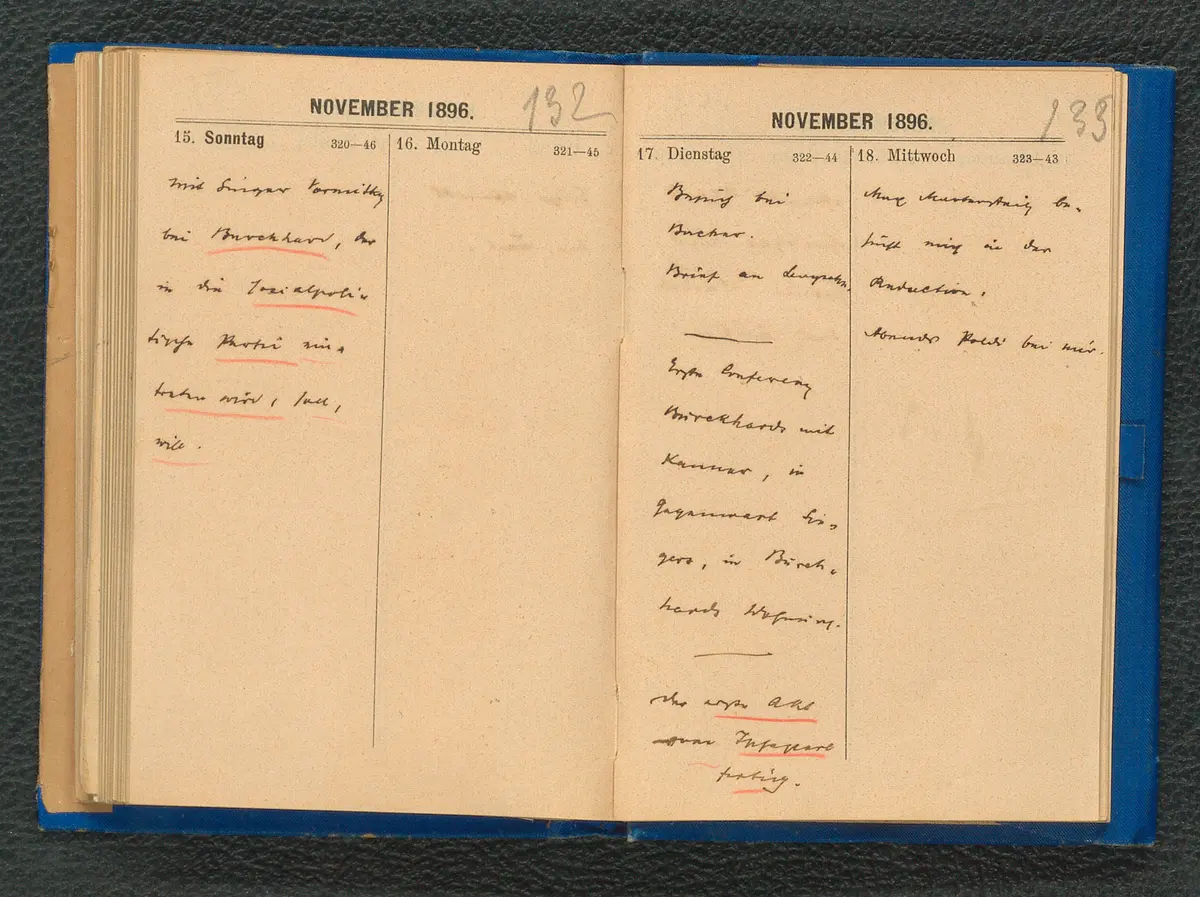 NOVEMBER 1896.
132
15. Sonntag 320—46
mit Singer Vormittag
bei Burckhard, der
in die Sozialpoli-
tische Partei ein-
treten wird, soll,
will.
16. Montag 321—45
NOVEMBER 1896.
133
17. Dienstag 322—44
Besuch bei
Bacher.
Brief an Levysohn.
Erste Conferenz
Burckhards mit
Kanner, in
Gegenwart Sin-
gers, in Burck-
hards Wohnung.
Der erste Akt
vom
fertig.
18. Mittwoch 323—43
Max Martersteig be-
sucht mich in der
Redaction.
Abends Poldi bei mir.